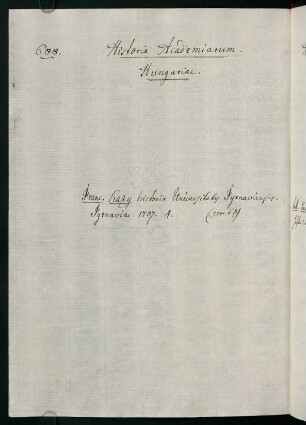 688.
Historia Academiarum.
Hungariae.
Franc. historia Universitatis Tyrnaviensis.
Tyrnaviae. 1737. 4.